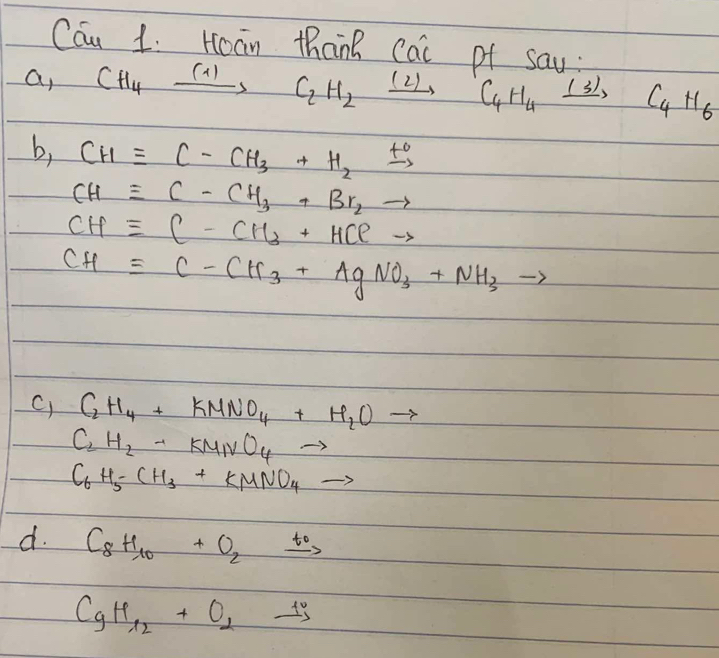 Câu 1: Hoàn thành các pt sau:
a, CH₄ —(1)→ C₂H₂ —(2)→ C₄H₄ —(3)→ C₄H₆
b, CH ≡ C - CH₃ + H₂ —t°→
CH ≡ C - CH₃ + Br₂ →
CH ≡ C - CH₃ + HCl →
CH ≡ C - CH₃ + AgNO₃ + NH₃ →
c, C₂H₄ + KMNO₄ + H₂O →
C₂H₂ + KMNO₄ →
C₆H₅-CH₃ + KMNO₄ →
d. C₈H₁₀ + O₂ —t°→
C₉H₁₂ + O₂ —t°→